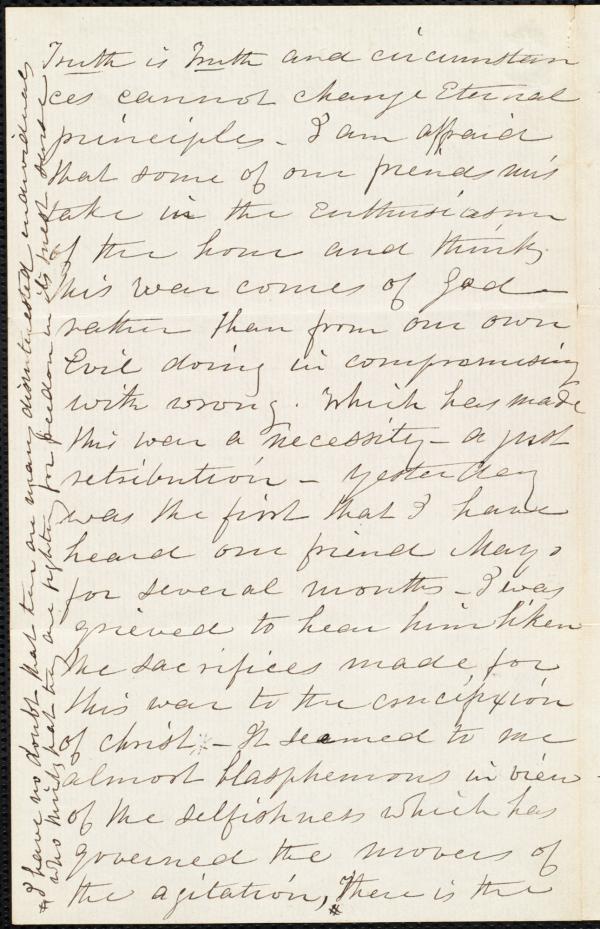 Truth is Truth and circumstan
ces cannot change Eternal
principles - I am affraid
that some of our friends mis
take in the Enthusiasm
of the hour and think
this war comes of God -
rather than from our own
Evil doing in compromising
with wrong. Which has made
this war a necessity - a just
retribution - Yesterday
was the first that I have
heard our friend May
for several months - I was
grieved to hear him liken
the sacrifices made for
this war to the crucifixion
of christ - It seemed to me
almost blasphemous in view
of the selfishness which has
governed the movers of
the agitation, # There is the
# I have no doubt that there are many disinterested individuals
who think that they are fighting for freedom in its truest sense